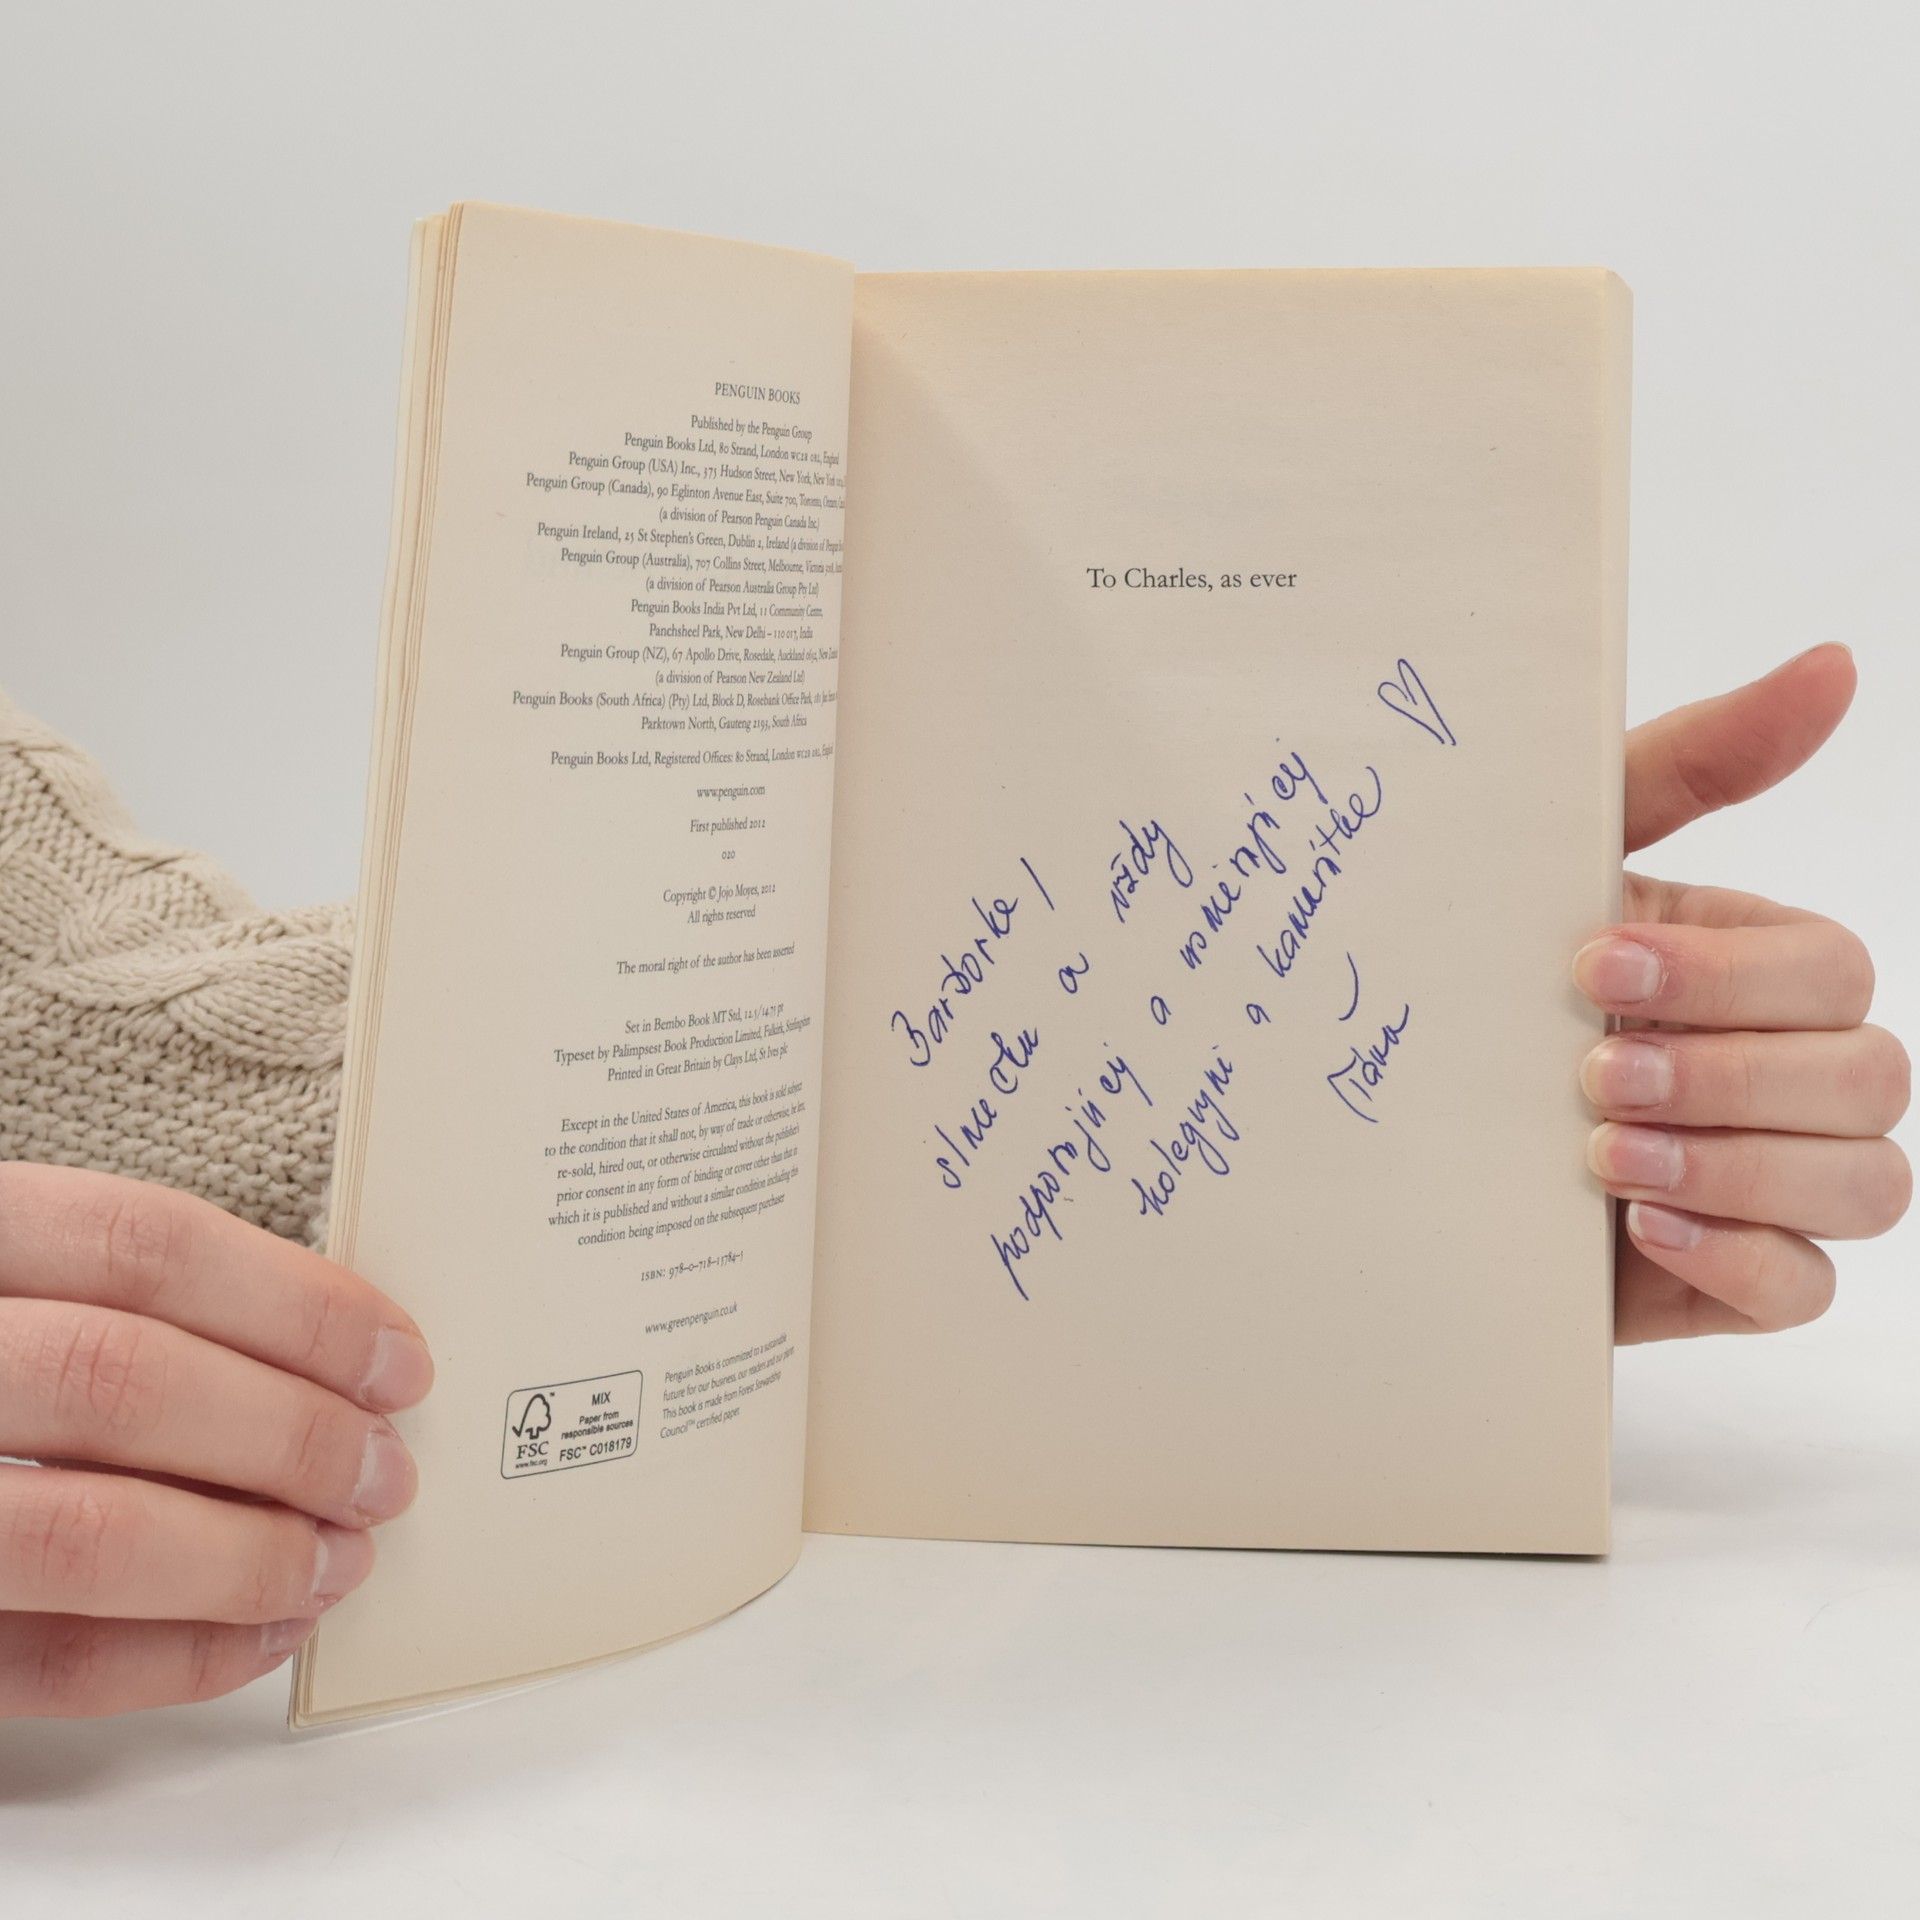 PENGUIN BOOKS
Published by the Penguin Group
Penguin Books Ltd, 80 Strand, London WC2R 0RL, England
Penguin Group (USA) Inc., 375 Hudson Street, New York, New York
Penguin Group (Canada), 90 Eglinton Avenue East, Suite 700, Toronto, Ontario,
(a division of Pearson Penguin Canada Inc.)
Penguin Ireland, 25 St Stephen's Green, Dublin 2, Ireland (a division of Penguin
Penguin Group (Australia), 707 Collins Street, Melbourne, Victoria 3008,
(a division of Pearson Australia Group Pty Ltd)
Penguin Books India Pvt Ltd, 11 Community Centre,
Panchsheel Park, New Delhi – 110 017, India
Penguin Group (NZ), 67 Apollo Drive, Rosedale, Auckland 0632, New Zealand
(a division of Pearson New Zealand Ltd)
Penguin Books (South Africa) (Pty) Ltd, Block D, Rosebank Office Park, 181 Jan Smuts
Parktown North, Gauteng 2193, South Africa
Penguin Books Ltd, Registered Offices: 80 Strand, London WC2R 0RL, England
www.penguin.com
First published 2012
020
Copyright © Jojo Moyes, 2012
All rights reserved
The moral right of the author has been asserted
Set in Bembo Book MT Std, 12.5/14.75 pt
Typeset by Palimpsest Book Production Limited, Falkirk, Stirlingshire
Printed in Great Britain by Clays Ltd, St Ives plc
Except in the United States of America, this book is sold subject
to the condition that it shall not, by way of trade or otherwise, be lent,
re-sold, hired out, or otherwise circulated without the publisher's
prior consent in any form of binding or cover other than that in
which it is published and without a similar condition including this
condition being imposed on the subsequent purchaser
ISBN: 978-0-718-15784-5
www.greenpenguin.co.uk
FSC™
www.fsc.org
MIX
Paper from
responsible sources
FSC™ C018179
Penguin Books is committed to a sustainable
future for our business, our readers and our planet.
This book is made from Forest Stewardship
Council™ certified paper.
To Charles, as ever
Barborke!
slnečku a vždy
podporujúcej a usmievajúcej
kolegyni a kamarátke
Táňa